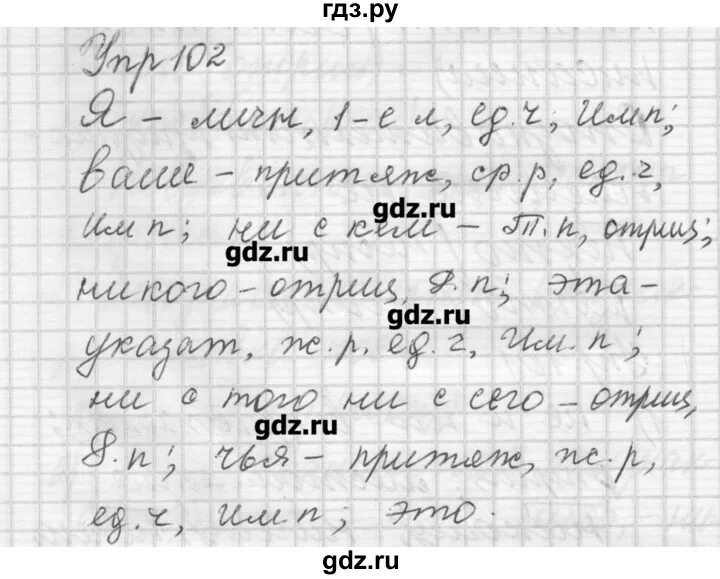 гдз.ру
Упр 102
Я – личн, 1-е л, ед.ч; Им.п;
ваше – притяж, ср.р, ед.ч,
gdz.ru
Им п; ни с кем – Т.п, отриц;
gdz.ru
никого – отриц, Р.п; эта –
gdz.ru
указат, ж.р, ед.ч, Им.п;
ни с того ни с сего – отриц,
gdz.ru
Р.п; чья – притяж, ж.р,
ед.ч, Им.п; это.
gdz.ru